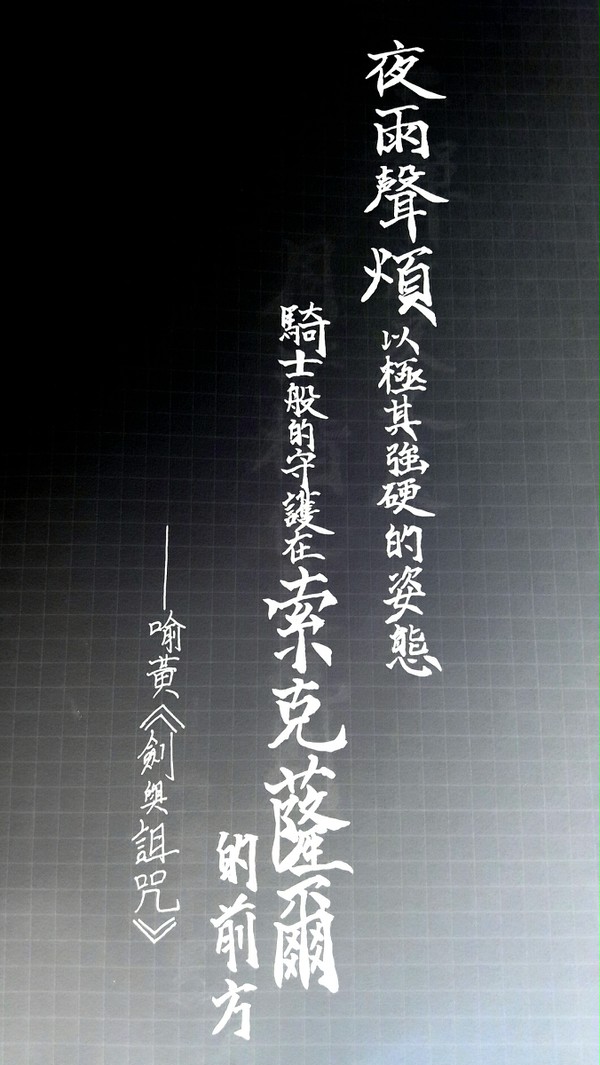 夜雨聲煩以極其強硬的姿態
騎士般的守護在索克薩爾
的前方
——喻黃《劍與詛咒》